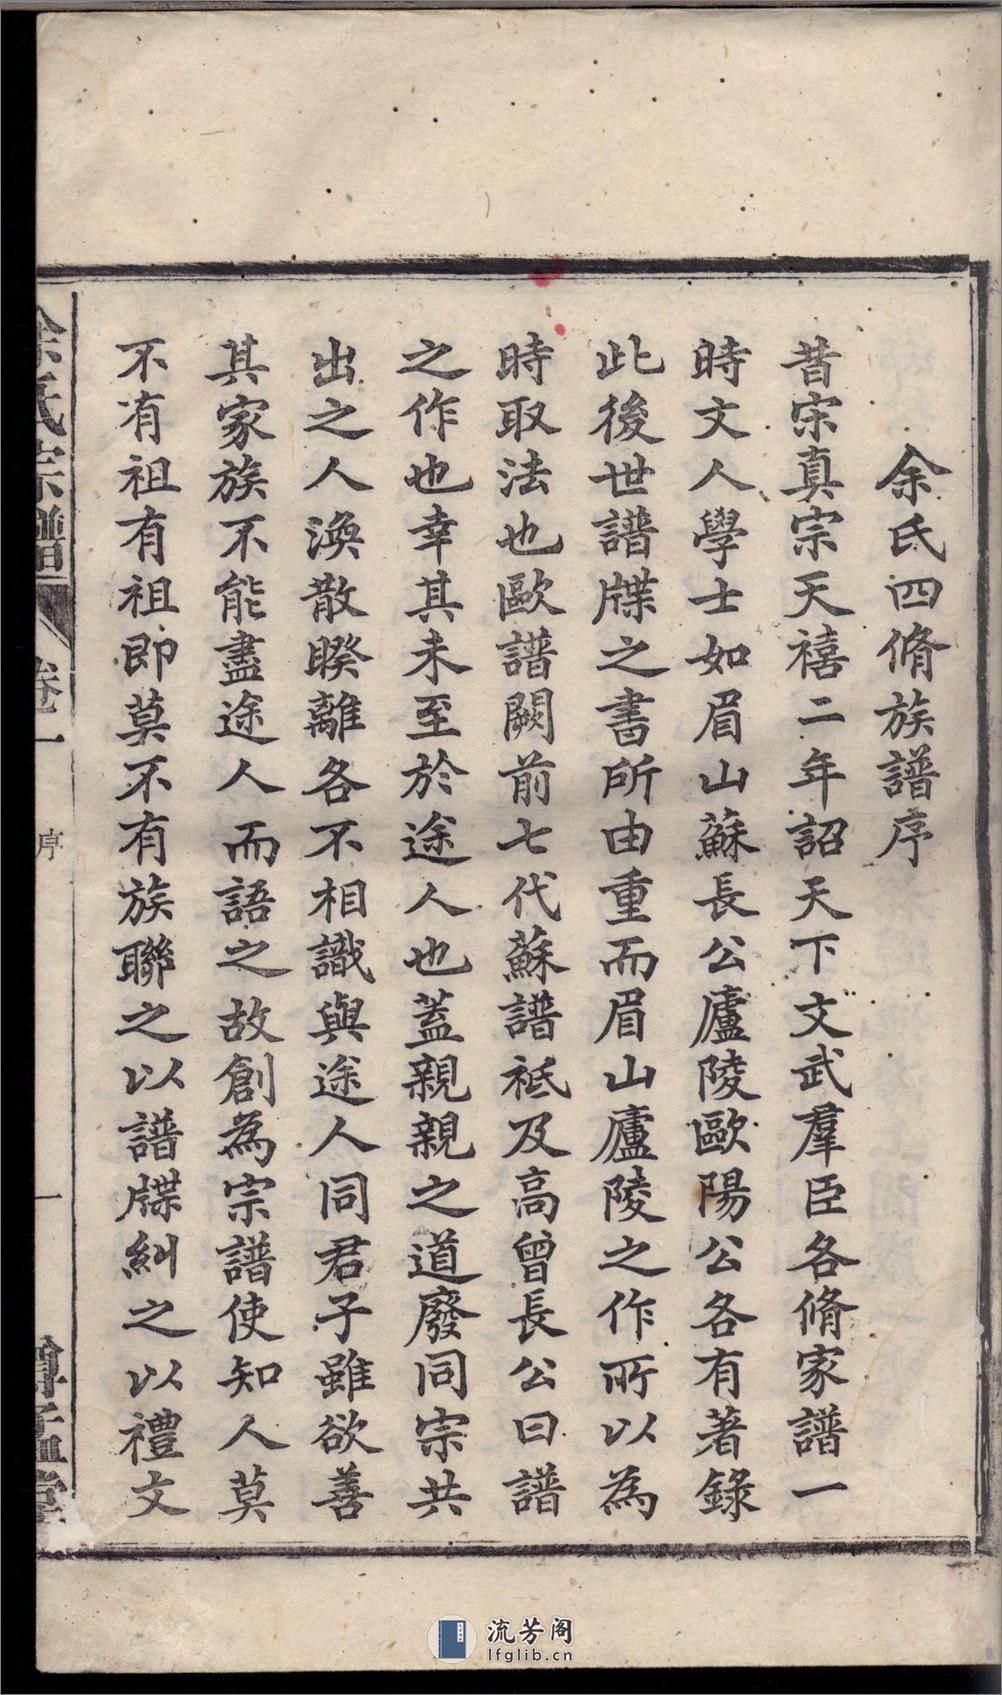 余氏四脩族譜序
昔宗真宗天禧二年詔天下文武羣臣各脩家譜一
時文人學士如眉山蘇長公廬陵歐陽公各有著錄
此後世譜牒之書所由重而眉山廬陵之作所以為
時取法也歐譜闕前七代蘇譜祗及高曾長公曰譜
之作也幸其未至於途人也蓋親親之道廢同宗共
出之人渙散暌離各不相識與途人同君子雖欲善
其家族不能盡途人而語之故創為宗譜使知人莫
不有祖有祖即莫不有族聯之以譜牒糾之以禮文
余氏宗譜 卷一 序 一
流芳阁
lfglib.cn